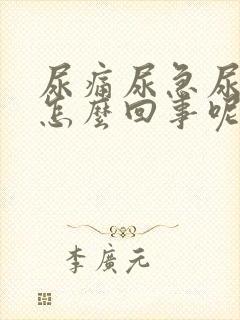 尿痛尿急尿
怎麼回事呢
李廣元